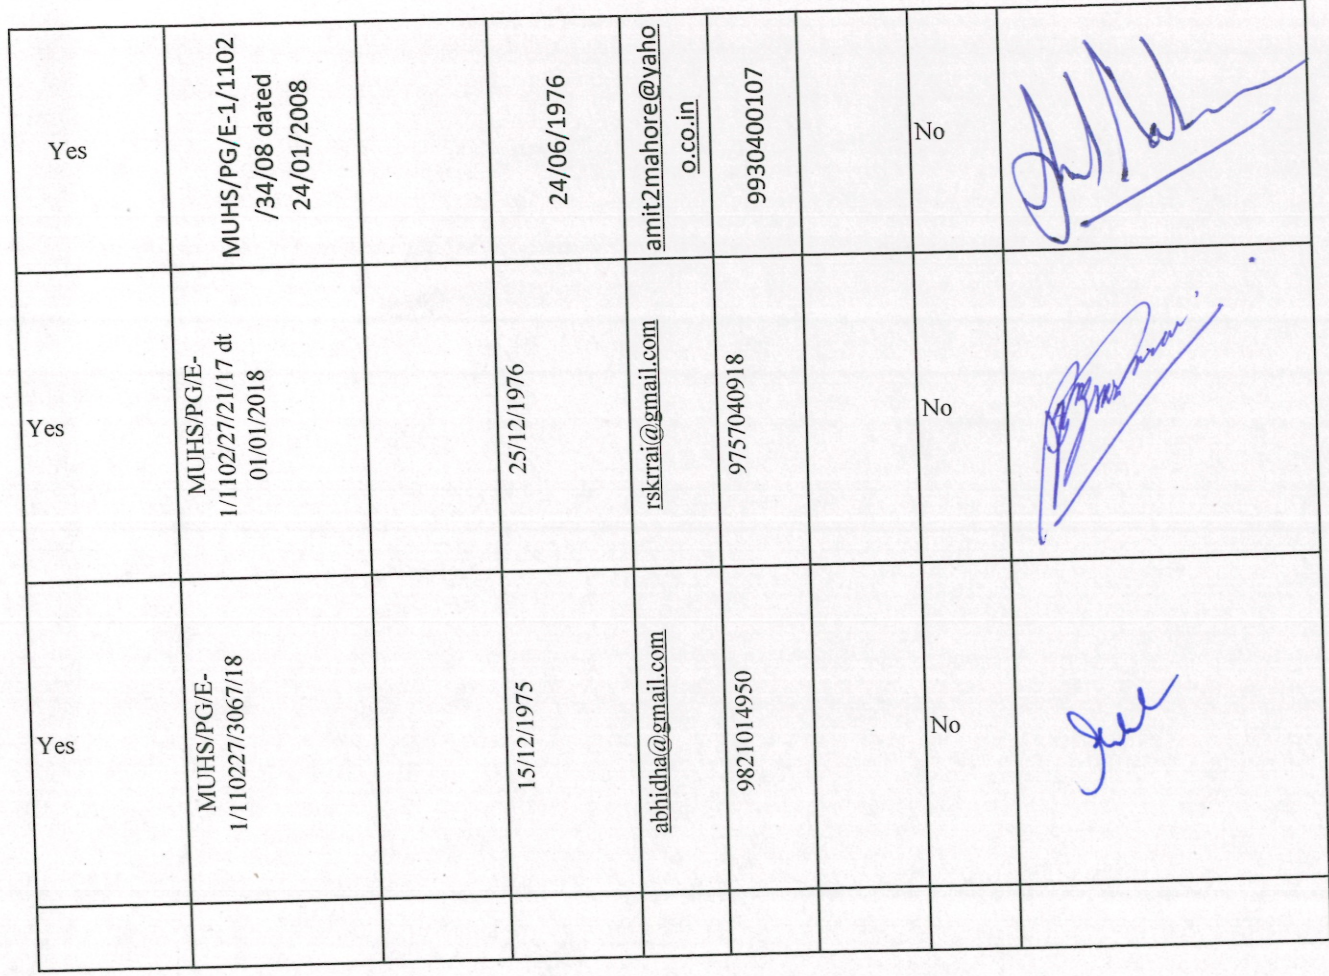 Yes
MUHS/PG/E-1/1102
/34/08 dated
24/01/2008
24/06/1976
amit2mahore@yaho
o.co.in
9930400107
No
Yes
MUHS/PG/E-
1/1102/27/21/17 dt
01/01/2018
25/12/1976
rskrrai@gmail.com
9757040918
No
Yes
MUHS/PG/E-
1/110227/3067/18
15/12/1975
abhidha@gmail.com
9821014950
No